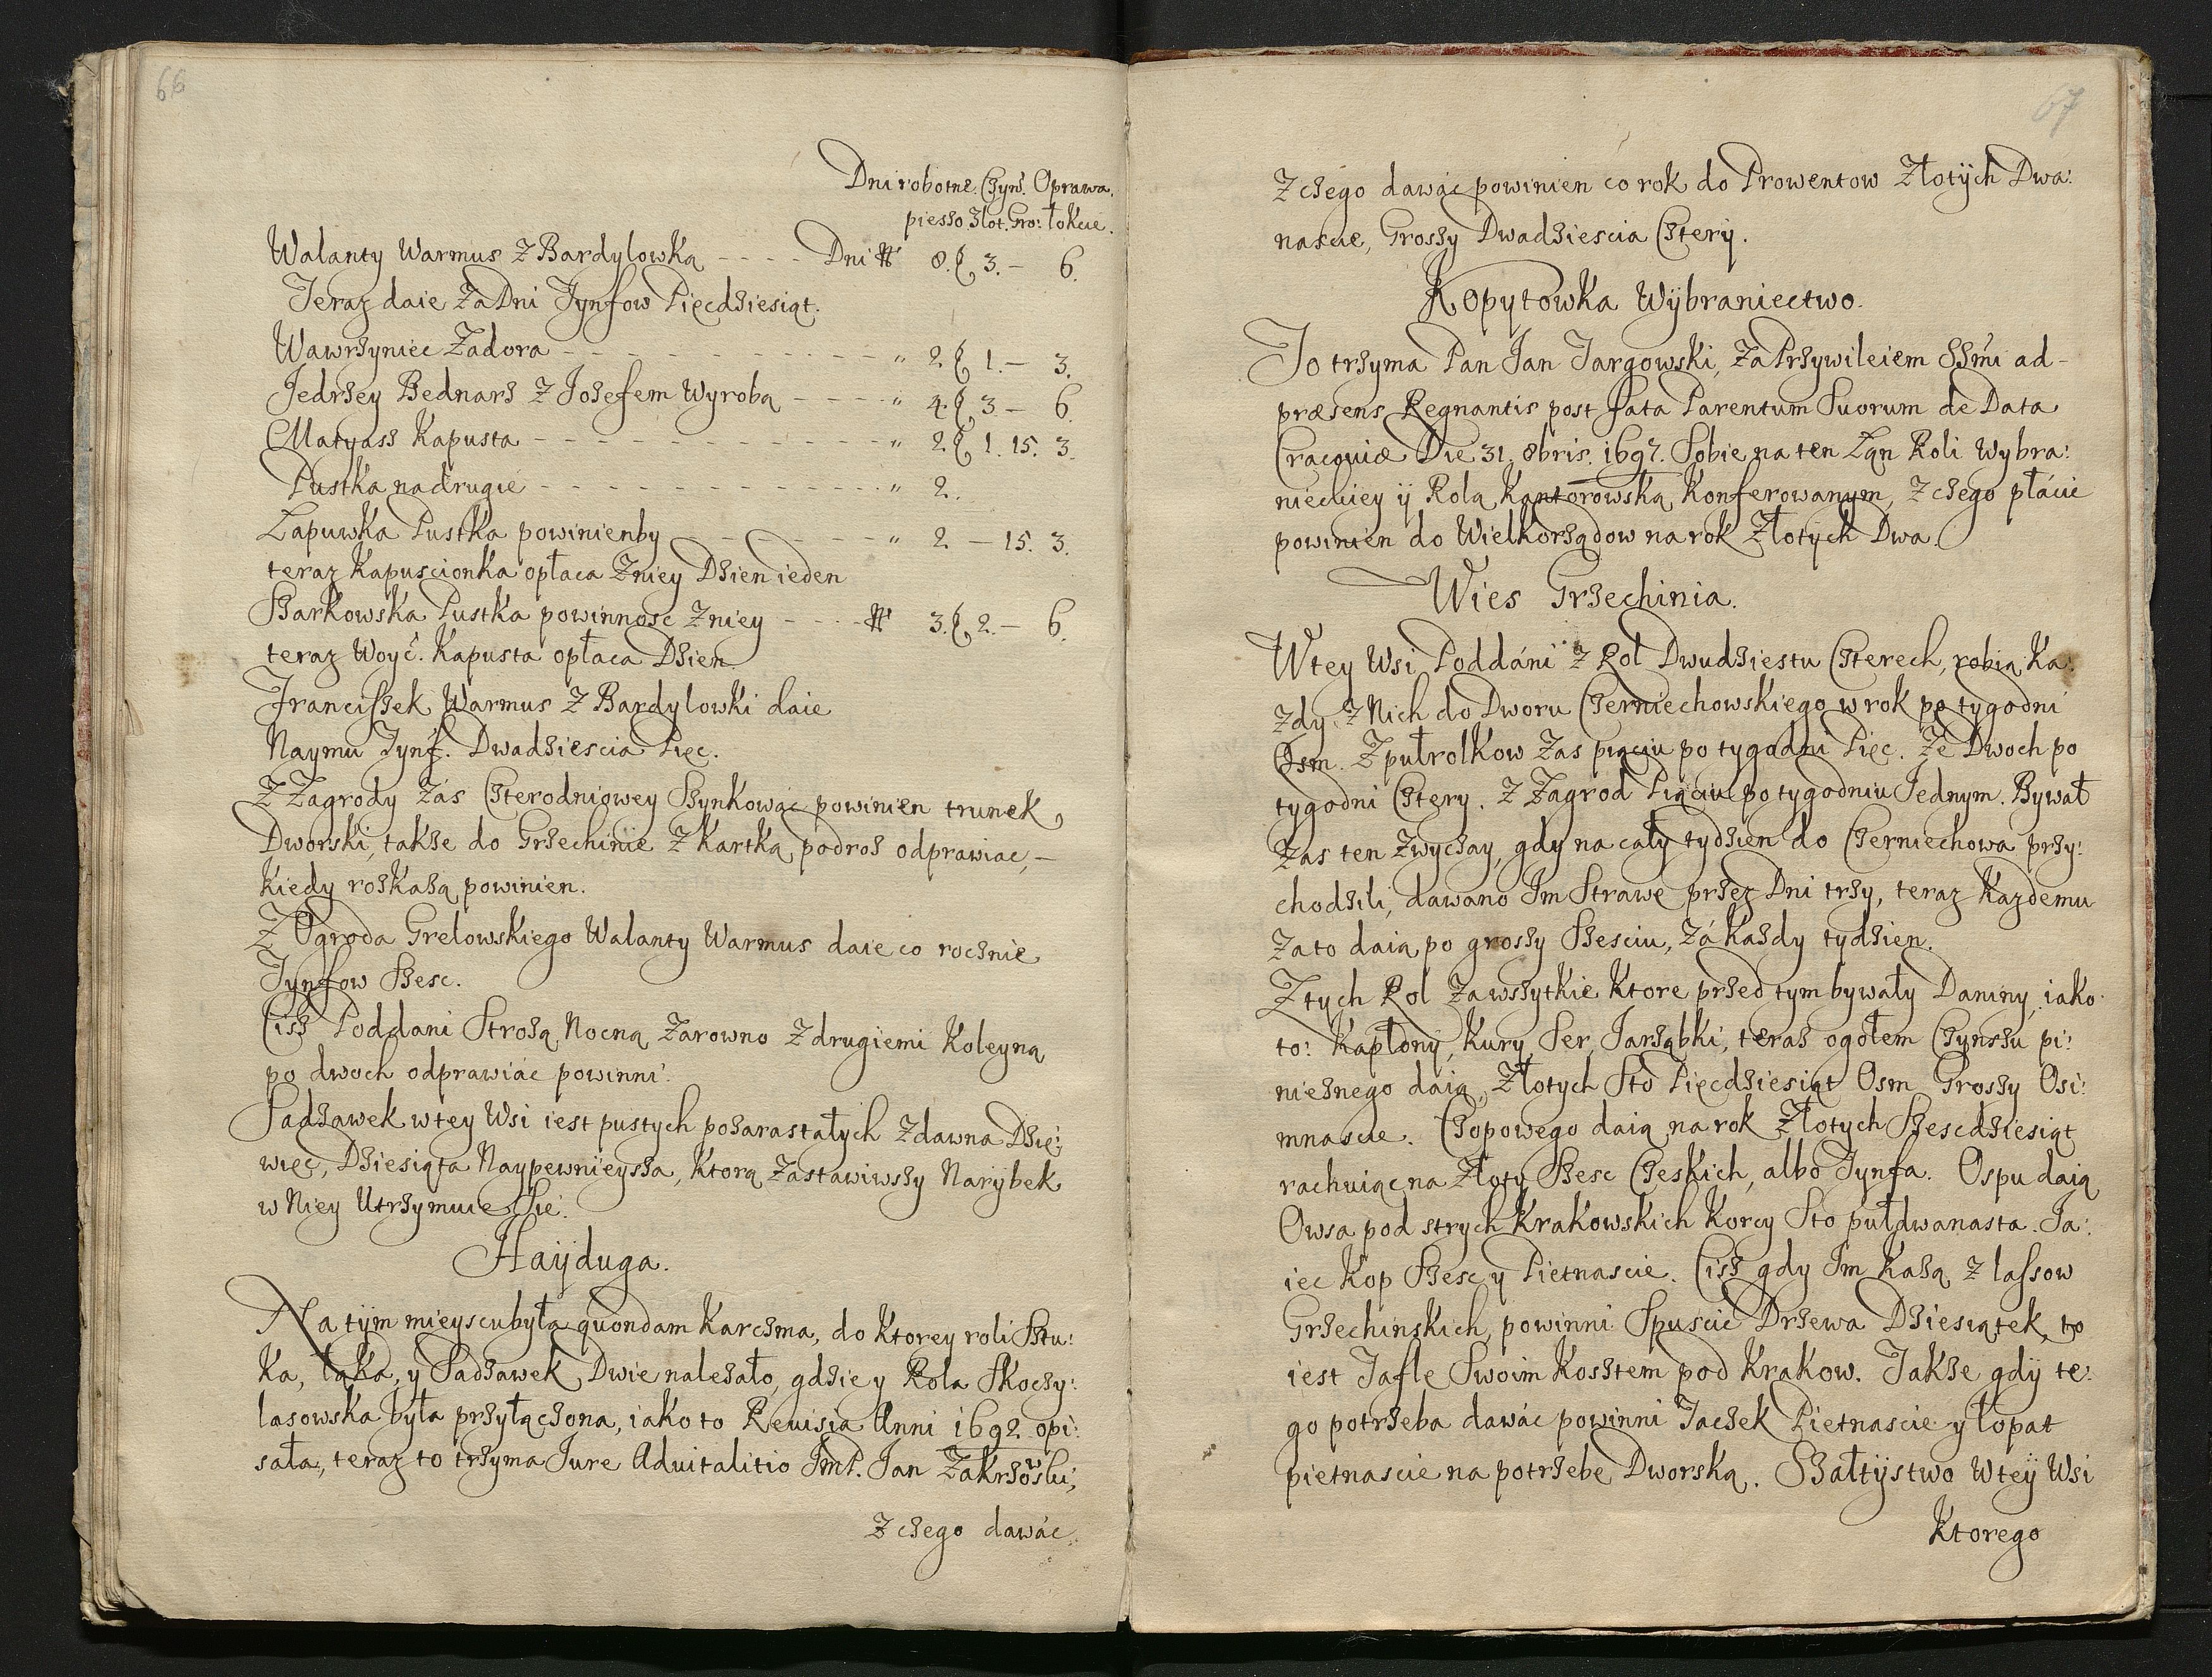 66
Dni robotne. Czyns. Oprawa.
pieszo. Zlot. Gro: łokcie.
Walanty Warmus z Bardylowką - - - - Dni # 8. 3. — 6.
Teraz daie za Dni Tynfow Pięcdziesiąt.
Wawrzyniec Zadora - - - - - - - - - - - " 2 1. — 3.
Jedrzey Bednarz z Jozefem Wyrobą - - - - " 4. 3 — 6
Matyasz Kapusta - - - - - - - - - - - - " 2. 1. 15. 3.
Pustka na drugie - - - - - - - - - - - - " 2.
Łapuwka Pustka powinienby - - - - - - - " 2 — 15. 3.
teraz Kapuscionka opłaca Zniey Dzien ieden
Szarkowska Pustka powinnosc Zniey - - - - # 3. 2. — 6.
teraz Woyc. Kapusta opłaca Dzien
Franciszek Warmus z Bardylowki daie
Naymu Tynf. Dwadziescia Pięc.
Z Zagrody zás Czterodniowey Szynkowác powinien trunek
Dworski, takze do Grzechinie z Kartką podroz odprawiac, —
kiedy rozkażą powinien.
Z Ogroda Grelowskiego Walanty Warmus daie co rocznie
Tynfow Szesc.
Cisz Poddani Strożą Nocną Zarowno z drugiemi Koleyną
po dwoch odprawiác powinni.
Sadzawek w tey Wsi iest pustych pozarastałych zdawna Dzie:
więc, Dziesiąta Naypewnieysza, Ktorą Zastawiwszy Narybek
w Niey Utrzymuie Sie.
Hayduga.
Na tym mieyscu była quondam Karczma, do Ktorey roli Sztu:
ka, łąka, y Sadzawek Dwie należało, gdzie y Rola Skoczy:
lasowska była przyłączona, iako to Rewisia Anni 1692 opi:
sała, teraz to trzyma Jure Aduitalitio Jmć. Jan
z czego dawác
67
Z czego dawác powinien co rok do Prowentow Złotych Dwa:
nascie, Groszy Dwadziescia Cztery.
Kopytowka Wybraniectwo.
To trzyma Pan Jan Targowski, Za Przywileiem SSmi ad-
præsens Regnantis post fata Parentum Suorum de Data
Cracoviæ Die 31. 8bris. 1697. Sobie na ten Łąn Roli Wybra:
nieckiey y Rolą Kantorowską Konferowanym, z czego płácic
powinien do Wielkorządow na rok Złotych Dwa.
Wies Grzechinia.
W tey Wsi Poddáni z Rol Dwudziestu Czterech, robią Ka:
żdy z Nich do Dworu Czerniechowskiego w rok po tygodni
Osm. Z pułrolkow Zas pięciu po tygodni Pięc. Ze Dwoch po
tygodni Cztery. Z Zagrod Pięciu po tygodniu Jednym. Bywał
Zas ten Zwyczay, gdy na cały tydzien do Czerniechowa przy:
chodzili, dawano Im Strawe przez Dni trzy, teraz Każdemu
Za to daią po groszy Szesciu, zá Każdy tydzien.
Z tych Rol Za wszytkie Ktore przed tym bywały Daniny, iako
to: Kapłony, Kury Ser, Jarząbki, teraz ogołem Czynszu pi:
nieżnego daią, Złotych Sto Pięcdziesiąt Osm Groszy Osi:
mnascie. Czopowego daią na rok Złotych Szescdziesiąt
rachuiąc na Złoty Szesc Czeskich, albo Tynfa. Ospu daią
Owsa pod strych Krakowskich Korcy Sto pułdwanasta. Ja:
iec Kop Szesc y Pietnascie. Cisz gdy Im Każą z lassow
Grzechinskich, powinni Spuscic Drzewa Dziesiątek, to
iest Tafle Swoim Kosztem pod Krakow. Takze gdy te:
go potrzeba dawác powinni Taczek Pietnascie y łopat
pietnascie na potrzebe Dworską. Szałtystwo w tey Wsi
Ktorego